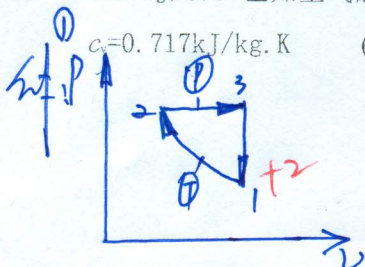 ①
cᵥ=0.717kJ/kg.K (
解 P
Ⓟ
2 3
Ⓣ 1 +2
v